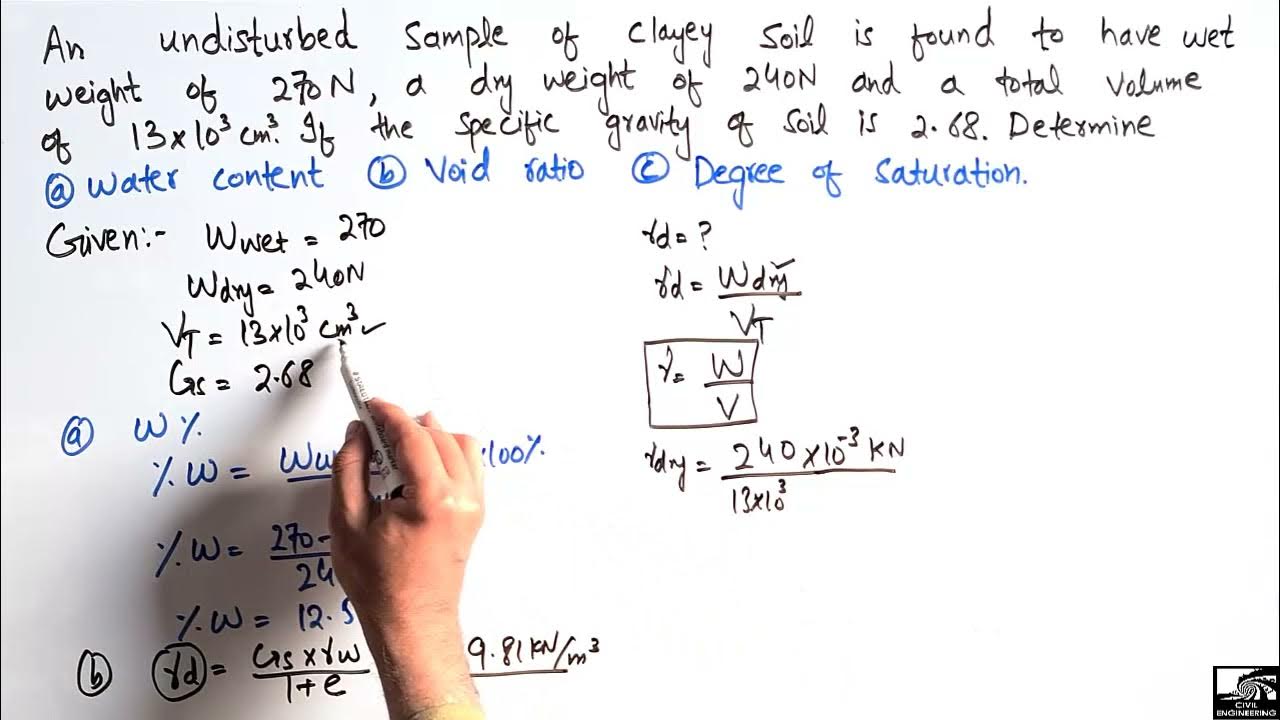 An undisturbed sample of clayey soil is found to have wet
weight of 270N, a dry weight of 240N and a total volume
of 13×10³ cm³. If the specific gravity of soil is 2.68. Determine
ⓐ Water content ⓑ Void ratio ⓒ Degree of saturation.
Given:- Wwet = 270
Wdry = 240N
VT = 13×10³ cm³ ✓
Gs = 2.68
ⓐ W%
%W = ×100%
%W = 270-
%W = 12.5
ⓑ γd = Gs×γw / 1+e 9.81 KN/m³
γd = ?
γd = Wdry / VT
γ = W / V
γdry = 240×10⁻³ KN / 13×10³
CIVIL
ENGINEERING